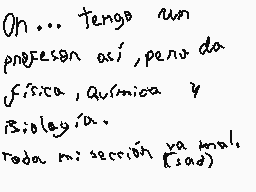 Oh... tengo un
profesor así, pero da
física, química y
Biología.
Toda mi sección va mal.
(sad)